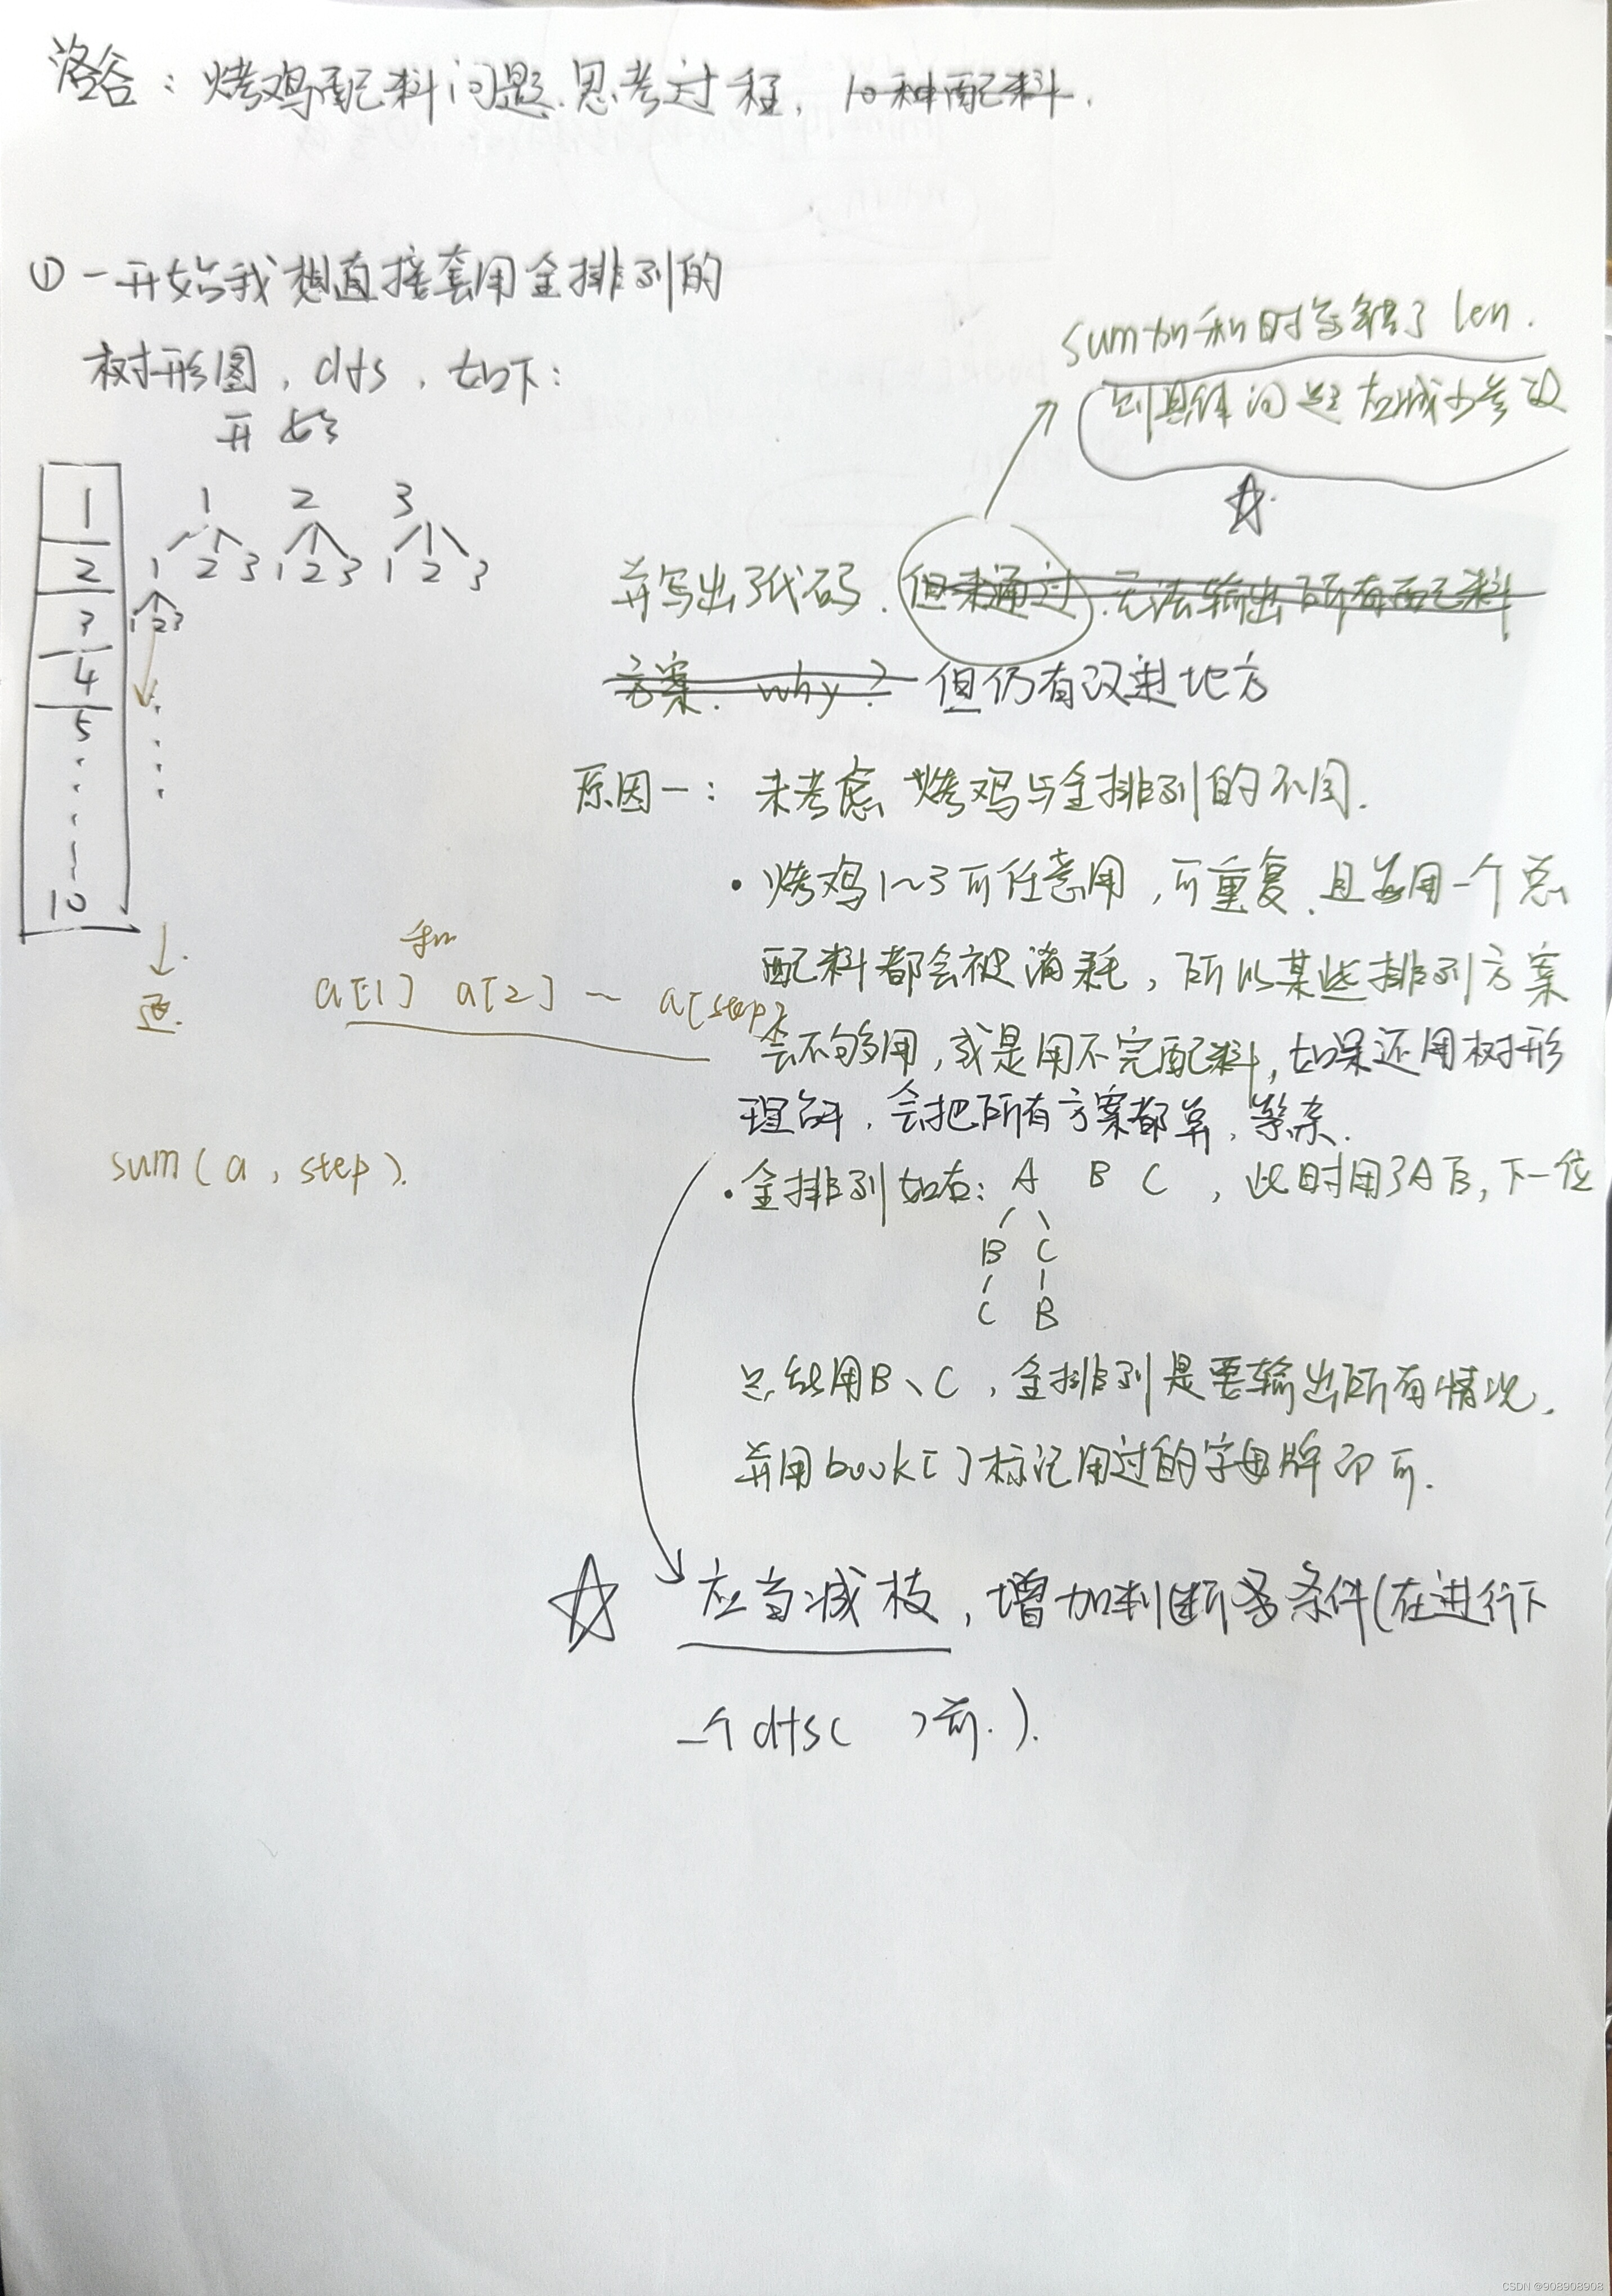 洛谷：烤鸡配料问题.思考过程，10种配料.
① 一开始我想直接套用全排列的
树形图，dfs，如下：
开始
1 1 2 3
2 1 2 3 1 2 3 1 2 3
3 1 2 3
4
5
10
sum加和时写错了len.
到具体问题应减少参数
并写出了代码.但未通过.无法输出所有配料
方案. why? 但仍有改进地方
原因一：未考虑烤鸡与全排列的不同.
·烤鸡1~3可任意用，可重复.且每用一个总
配料都会被消耗，所以某些排列方案
会不够用，或是用不完配料，如果还用树形
理解，会把所有方案都算，繁杂.
和
a[1] a[2] ~ a[step]
sum(a, step).
·全排列如右：A B C，此时用了A后，下一位
B C
C B
只能用B、C，全排列是要输出所有情况.
并用book[]标记用过的字母牌即可.
☆ 应当减枝，增加判断条件(在进行下
一个dfs( )前.).
CSDN @908908908